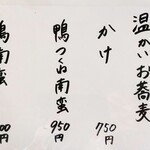 温かいお蕎麦
かけ
750円
鴨つくね南蛮
950円
鴨南蛮
00円